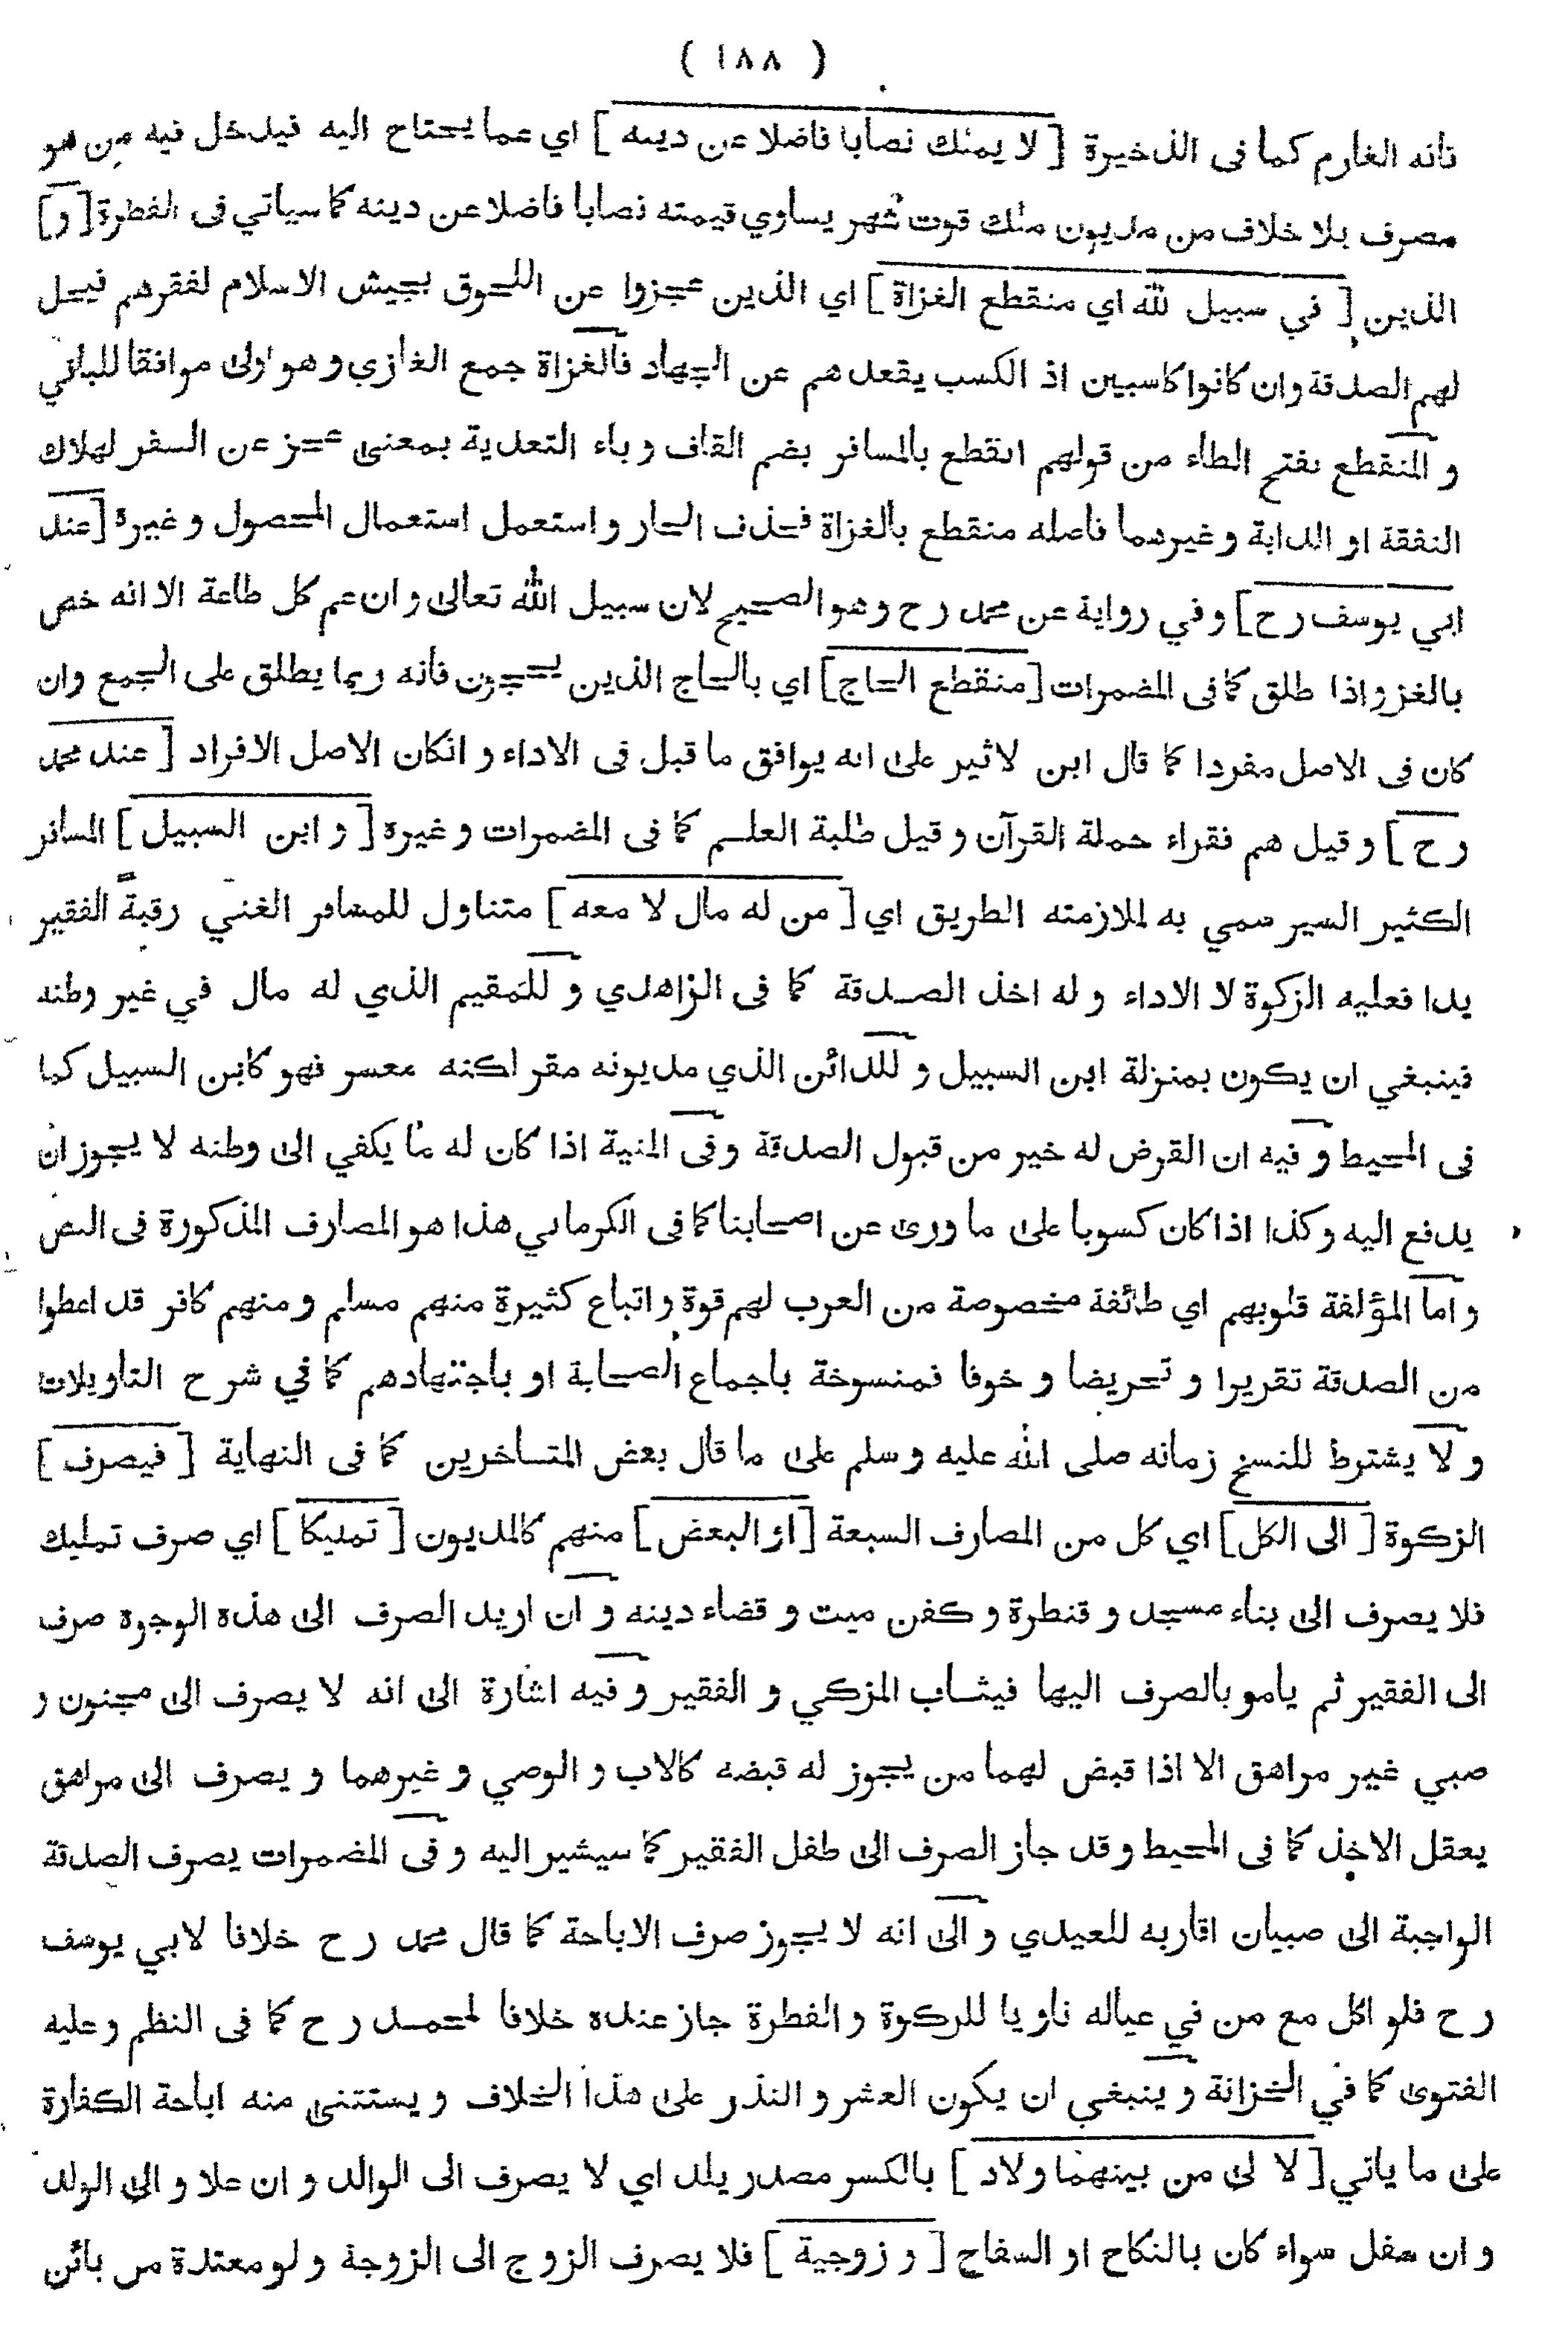 ( ١٨٨ )
فانه الغارم كما فى الذخيرة [ لا يملك نصابا فاضلا عن دينه ] اي عما يحتاج اليه فيدخل فيه من هو
مصرف بلا خلاف من مديون ملك قوت شهر يساوي قيمته نصابا فاضلا عن دينه كما سياتي فى الفطرة [ و ]
الذين [ في سبيل لله اي منقطع الغزاة ] اي الذين عجزوا عن اللحوق بجيش الاسلام لفقرهم فيحل
لهم الصدقة وان كانوا كاسبين اذ الكسب يقعدهم عن الجهاد فالغزاة جمع الغازي و هو اولى موافقا للباقي
و المنقطع بفتح الطاء من قولهم انقطع بالمسافر بضم القاف و باء التعدية بمعنى عجز عن السفر لهلاك
النفقة او الدابة و غيرهما فاصله منقطع بالغزاة فحذف الجار و استعمل استعمال المحصول و غيره [ عند
ابي يوسف رح ] و في رواية عن محمد رح و هو الصحيح لان سبيل الله تعالى و ان عم كل طاعة الا انه خص
بالغزو اذا طلق كما فى المضمرات [ منقطع الحاج ] اي بالحاج الذين يحجون فانه ربما يطلق على الجمع وان
كان فى الاصل مفردا كما قال ابن لاثير على انه يوافق ما قبل فى الاداء و انكان الاصل الافراد [ عند محمد
رح ] و قيل هم فقراء حملة القرآن و قيل طلبة العلم كما فى المضمرات و غيره [ و ابن السبيل ] المسافر
الكثير السير سمي به لملازمته الطريق اي [ من له مال لا معه ] متناول للمسافر الغني رقبةً الفقير
يدا فعليه الزكوة لا الاداء و له اخذ الصدقة كما فى الزاهدي و للمقيم الذي له مال في غير وطنه
فينبغي ان يكون بمنزلة ابن السبيل و للدائن الذي مديونه مقر لكنه معسر فهو كابن السبيل كما
فى المحيط و فيه ان القرض له خير من قبول الصدقة و فى المنية اذا كان له ما يكفي الى وطنه لا يجوز ان
يدفع اليه و كذا اذا كان كسوبا على ما روى عن اصحابنا كما فى الكرماني هذا هو المصارف المذكورة فى النص
و اما المؤلفة قلوبهم اي طائفة مخصوصة من العرب لهم قوة و اتباع كثيرة منهم مسلم و منهم كافر قد اعطوا
من الصدقة تقريرا و تحريضا و خوفا فمنسوخة باجماع الصحابة او باجتهادهم كما في شرح التاويلات
و لا يشترط للنسخ زمانه صلى الله عليه و سلم على ما قال بعض المتاخرين كما فى النهاية [ فيصرف ]
الزكوة [ الى الكل ] اي كل من المصارف السبعة [ او البعض ] منهم كالمديون [ تمليكا ] اي صرف تمليك
فلا يصرف الى بناء مسجد و قنطرة و كفن ميت و قضاء دينه و ان اريد الصرف الى هذه الوجوه صرف
الى الفقير ثم يامر بالصرف اليها فيثاب المزكي و الفقير و فيه اشارة الى انه لا يصرف الى مجنون و
صبي غير مراهق الا اذا قبض لهما من يجوز له قبضه كالاب و الوصي و غيرهما و يصرف الى مراهق
يعقل الاخذ كما فى المحيط و قد جاز الصرف الى طفل الفقير كما سيشير اليه و فى المضمرات يصرف الصدقة
الواجبة الى صبيان اقاربه للعيدي و الى انه لا يجوز صرف الاباحة كما قال محمد رح خلافا لابي يوسف
رح فلو اكل مع من في عياله ناويا للزكوة و الفطرة جاز عنده خلافا لمحمد رح كما فى النظم و عليه
الفتوى كما في الخزانة و ينبغي ان يكون العشر و النذر على هذا الخلاف و يستثنى منه اباحة الكفارة
على ما ياتي [ لا لى من بينهما ولاد ] بالكسر مصدر يلد اي لا يصرف الى الوالد و ان علا و الى الولد
و ان سفل سواء كان بالنكاح او السفاح [ و زوجية ] فلا يصرف الزوج الى الزوجة و لو معتدة من بائن